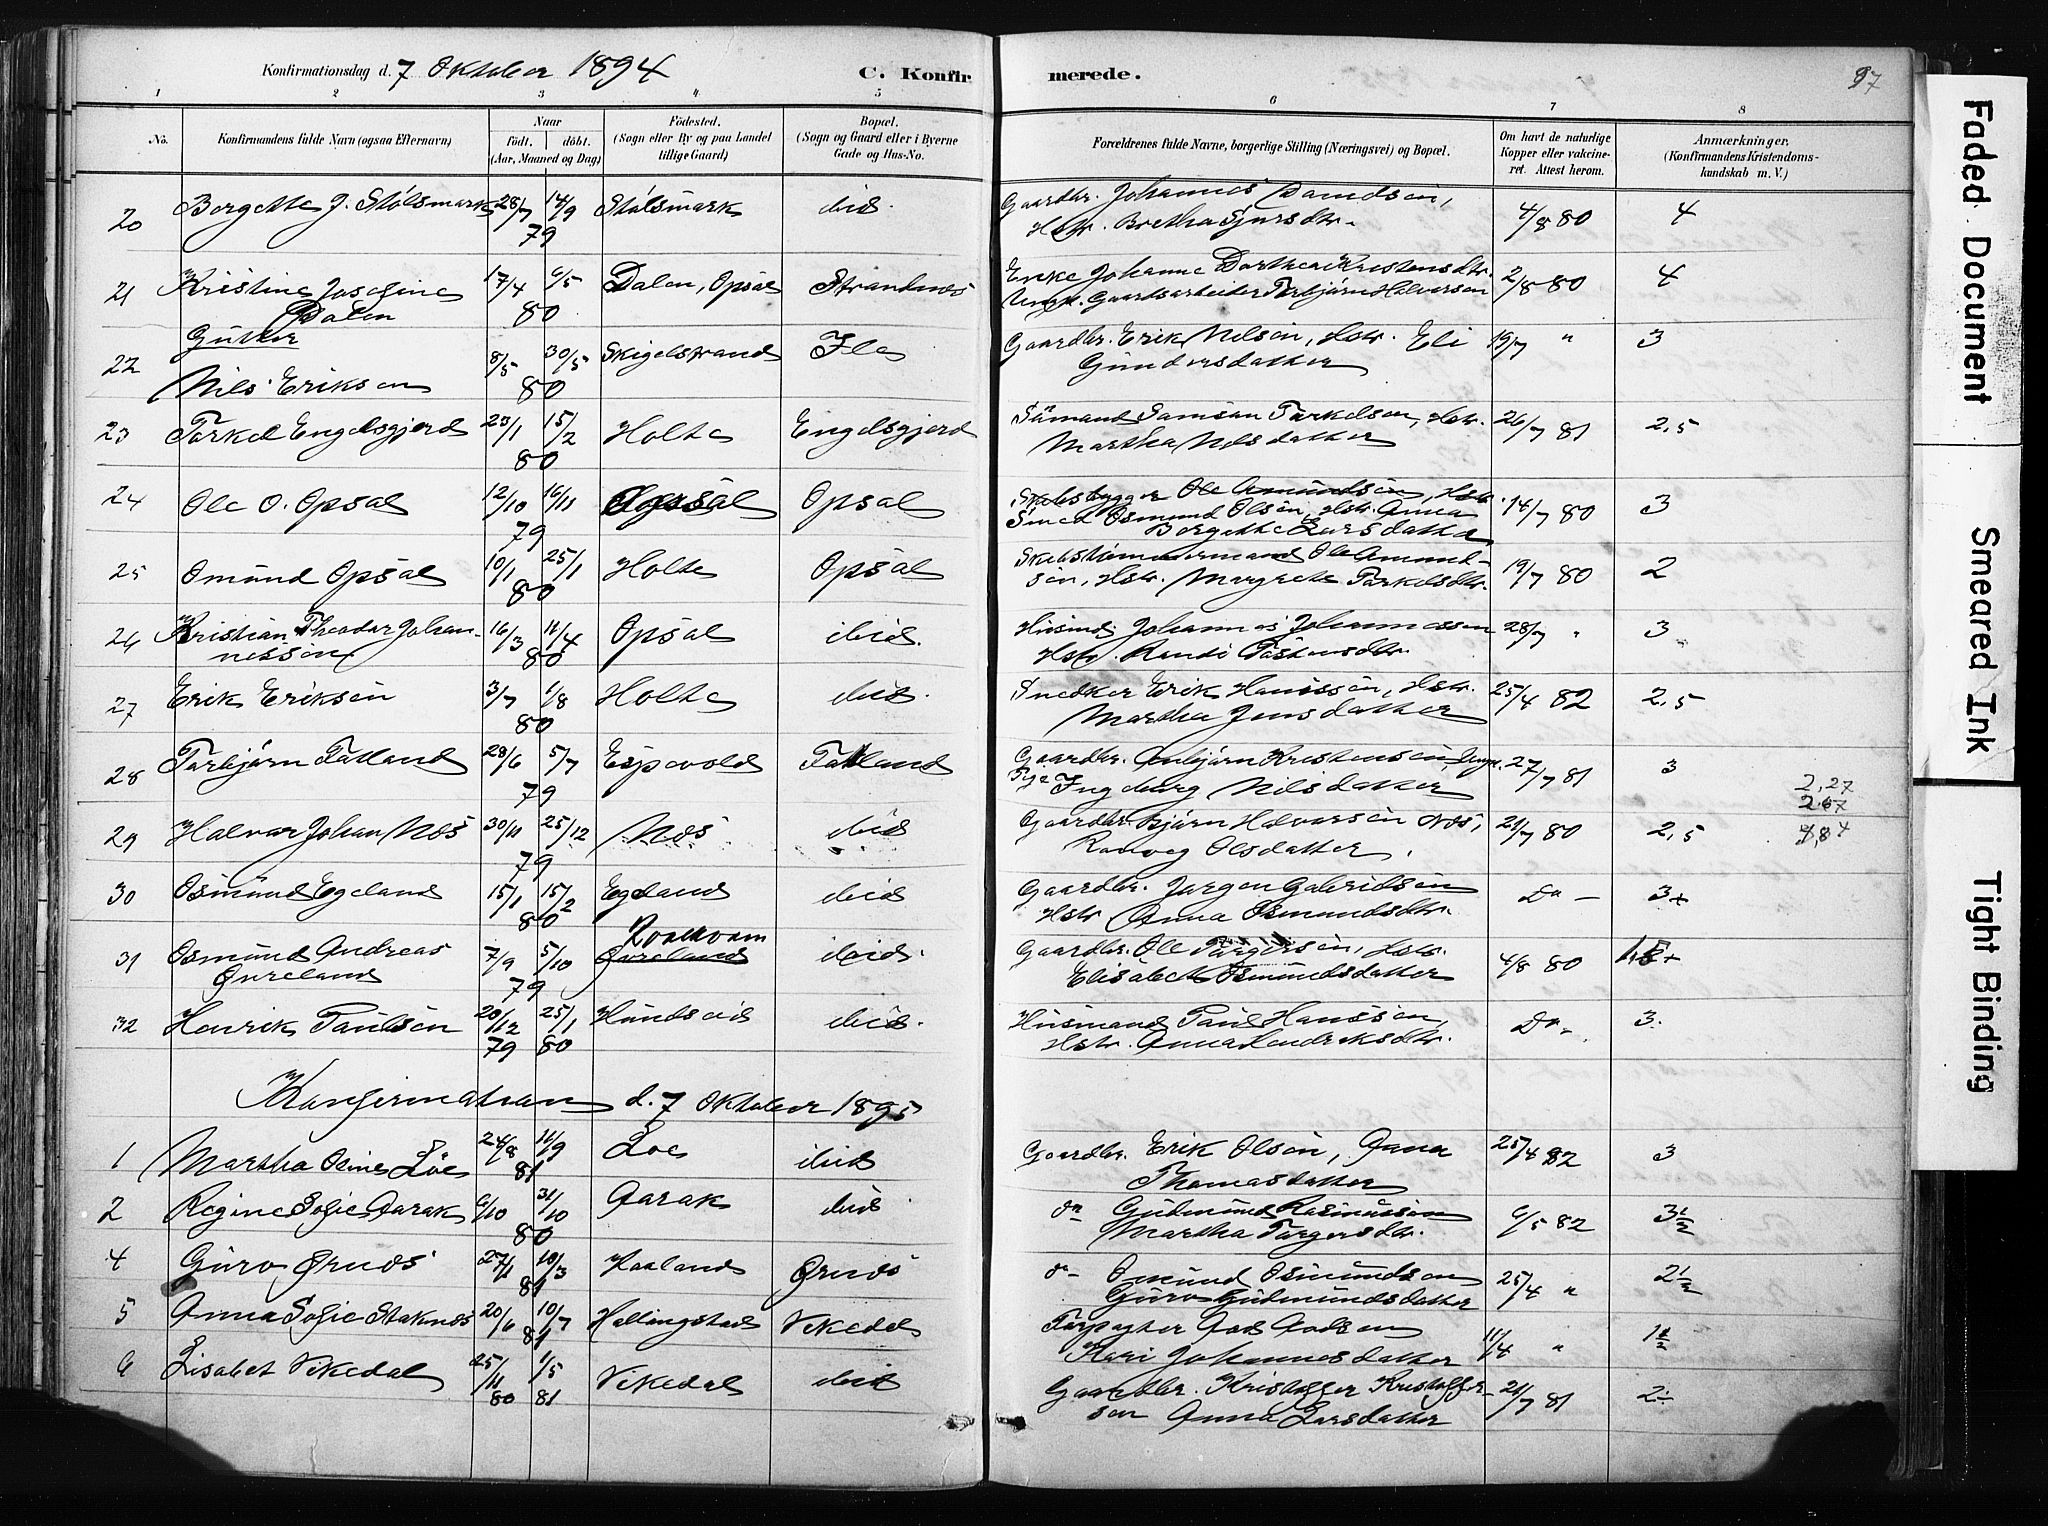 Konfirmationsdag d. 7 Oktober 1894
C. Konfirmerede.
97
1 2 3 4 5 6 7 8
No. Konfirmandens fulde Navn (ogsaa Efternavn) Naar födt. döbt. (Aar, Maaned og Dag) Födested. (Sogn eller By og paa Landet tillige Gaard) Bopæl. (Sogn og Gaard eller i Byerne Gade og Hus-No. Forældrenes fulde Navne, borgerlige Stilling (Næringsvei) og Bopæl. Om havt de naturlige Kopper eller vakcineret. Attest herom. Anmærkninger. (Konfirmandens Kristendomskundskab m. V.)
20 Borgette J. Stölsmark 28/7 14/9 79 Stölsmark ibid. Gaardbr. Johannes Davidsen, Hstr. Bretha Sjursdtr. 4/8 80 4
21 Kristine Josefine Dalen 17/4 6/5 80 Dalen, Opsal Strandnes Enke Johanne Dorthea Kristensdtr. Ungk. Gaardsarbeider Torbjörn Halvorsen 2/8 80 4
22 Gutter
Nils Eriksen 8/5 30/5 80 Skigelstrand Ila Gaardbr. Erik Nilsen, Hstr. Eli Gundersdatter 19/7 " 3
23 Torkel Engelsgjerd 23/1 15/2 80 Holte Engelsgjerd Sömand Samson Torkelsen, Hstr. Martha Nilsdatter 26/7 81 2,5
24 Ole O. Opsal 12/10 16/11 79 Opsal Opsal Skibsbygger Ole Amundsen, Hstr. Smed Osmund Olsen, Hstr. Anna Borgette Larsdatter 14/7 80 3
25 Omund Opsal 10/1 25/1 80 Holte Opsal Skibstömmermand Ole Amundsen, Hstr. Margrete Torkelsdtr. 19/7 80 2
26 Kristian Theodor Johannessen 16/3 11/4 80 Opsal ibid. Husmd. Johannes Johannessen Hstr. Randi Tostensdtr. 28/7 " 3
27 Erik Eriksen 3/7 1/8 80 Holte ibid. Snedker Erik Hanssen, Hstr. Martha Jensdatter 25/4 82 2,5
28 Torbjörn Tatland 28/6 5/7 79 Espevold Tatland Gaardbr. Anbjörn Kristensen, Ungk. Pige Ingeborg Nilsdatter 27/7 81 3
2,27
2,67
29 Halvar Johan Næs 30/11 25/12 79 Næs ibid Gaardbr. Bjørn Halvorsen Næs, Ranveg Olsdatter. 21/7 80 2,5
30 Osmund Egeland 15/1 15/2 80 Egeland ibid Gaardbr. Jorgen Gabrielsen Hstr Anna Osmundsdtr. Do — 3+
31 Osmund Andreas Øvreland 7/9 5/10 79 Øvreland ibid. Gaardbr. Ole Torgersen, Hstr. Elisabeth Osmundsdatter 4/8 80
32 Henrik Paulsen 20/12 79 25/1 80 Hundseid ibid. Husmand Paul Hanssen, Hstr. Anna Hendriksdtr. Do 3.
Konfirmation d. 7 Oktober 1895
1 Martha Osine Löe 24/8 11/9 81 Loe ibid Gaardbr. Erik Olsen, Anna Thomasdatter 25/4 82 3
2 Regine Sofie Aarak 6/10 31/10 80 Aarak ibid do Gudmund Rasmussen Martha Torgersdtr. 6/5 82 3½
4 Guro Ørnes 27/1 10/3 81 Haaland Ørnes do Omund Osmundsen Guro Gudmundsdatter 25/4 " 2½
5 Anna Sofie Staknes 20/6 10/7 81 Hallingstad Vikedal Forpagter Aad Aadsen Kari Johannesdatter 11/4 " 1½
6 Lisabet Vikedal 25/11 80 1/5 81 Vikedal ibid Gaardbr. Kristoffer Kristoffersen Anna Larsdatter 21/7 81 2
Faded Document
Smeared Ink
Tight Binding